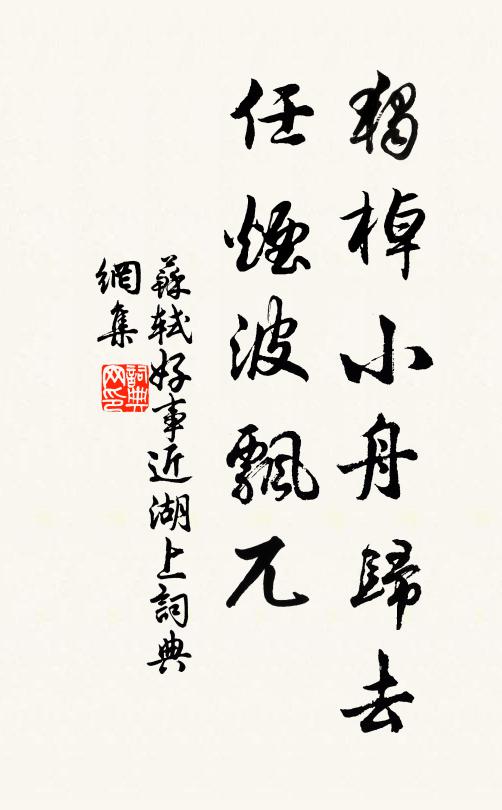 獨棹小舟歸去
任煙波飄兀
蘇軾好事近湖上詞典
網集
詞典
网印